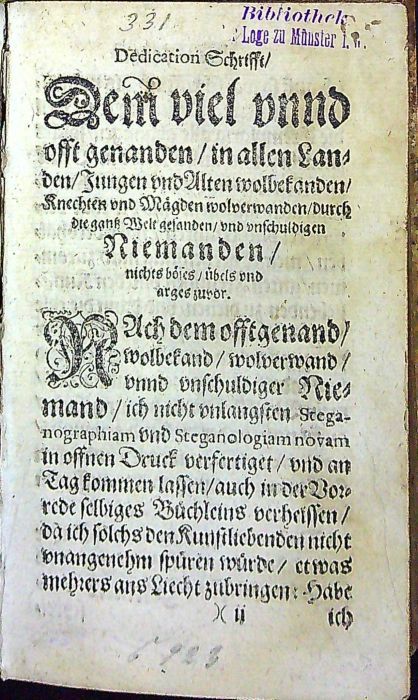 331
Bibliothek
Loge zu Münster i. W.
Dedication Schrifft/
Dem viel vnnd
offt genanden / in allen Lan⸗
den / Jungen vnd Alten wolbekanden /
Knechten vnd Mägden wolverwanden / durch
die gantz Welt gesanden / vnd vnschuldigen
Niemanden /
nichts böses / übels vnd
arges zuvor.
NAch dem offtgenand /
wolbekand / wolverwand /
vnnd vnschuldiger Nie⸗
mand / ich nicht vnlangsten Stega⸗
nographiam vnd Steganologiam novam
in offnen Druck verfertiget / vnd an
Tag kommen lassen / auch in der Vor⸗
rede selbiges Büchleins verheissen /
da ich solchs den Kunstliebenden nicht
vnangenehm spüren würde / etwas
mehrers ans Liecht zubringen: Habe
)( ii ich